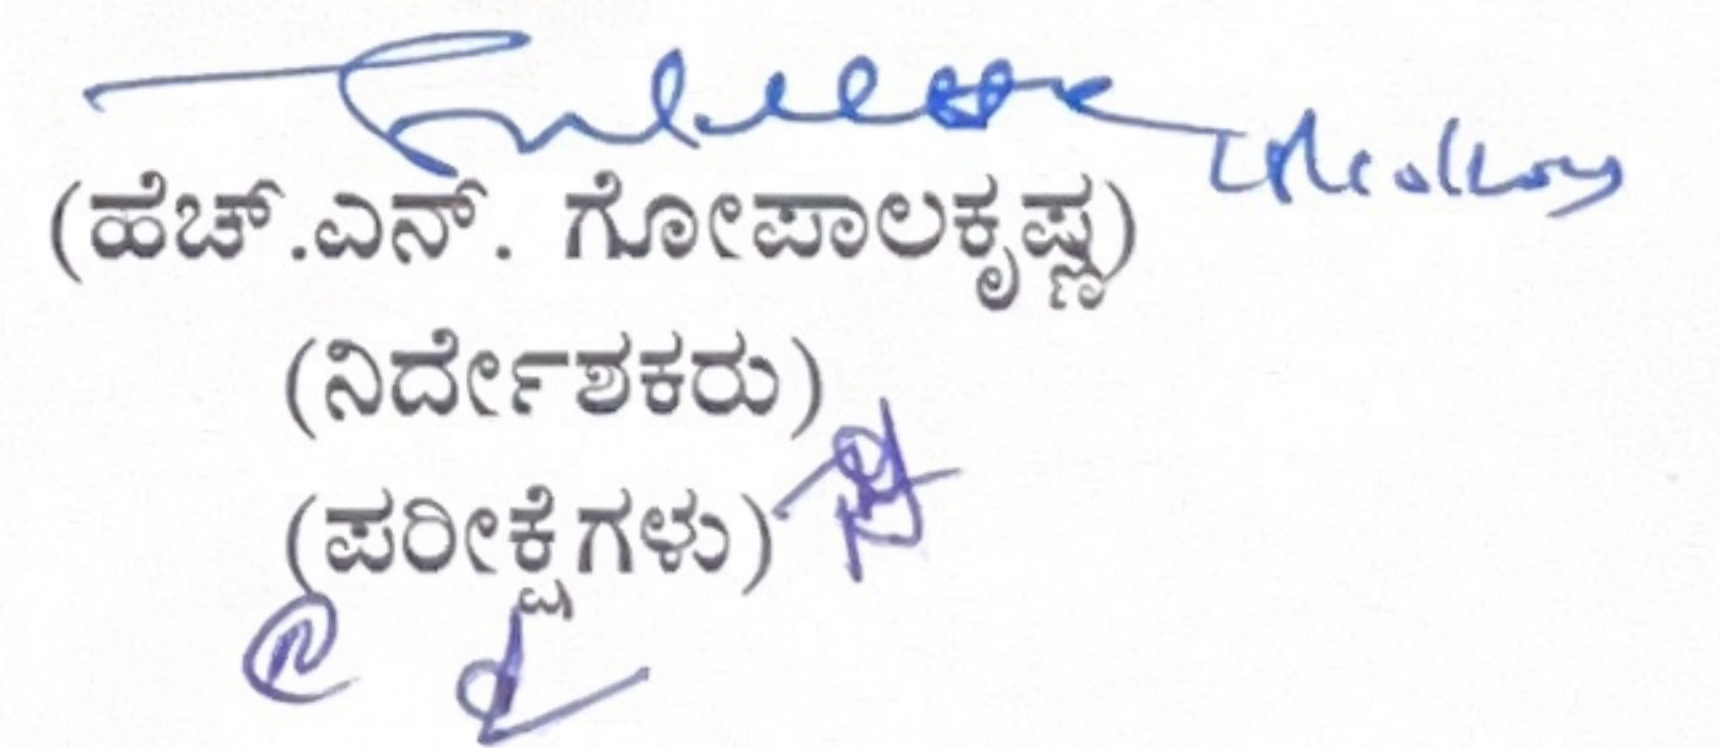 (ಹೆಚ್.ಎನ್. ಗೋಪಾಲಕೃಷ್ಣ)
(ನಿರ್ದೇಶಕರು)
(ಪರೀಕ್ಷೆಗಳು)